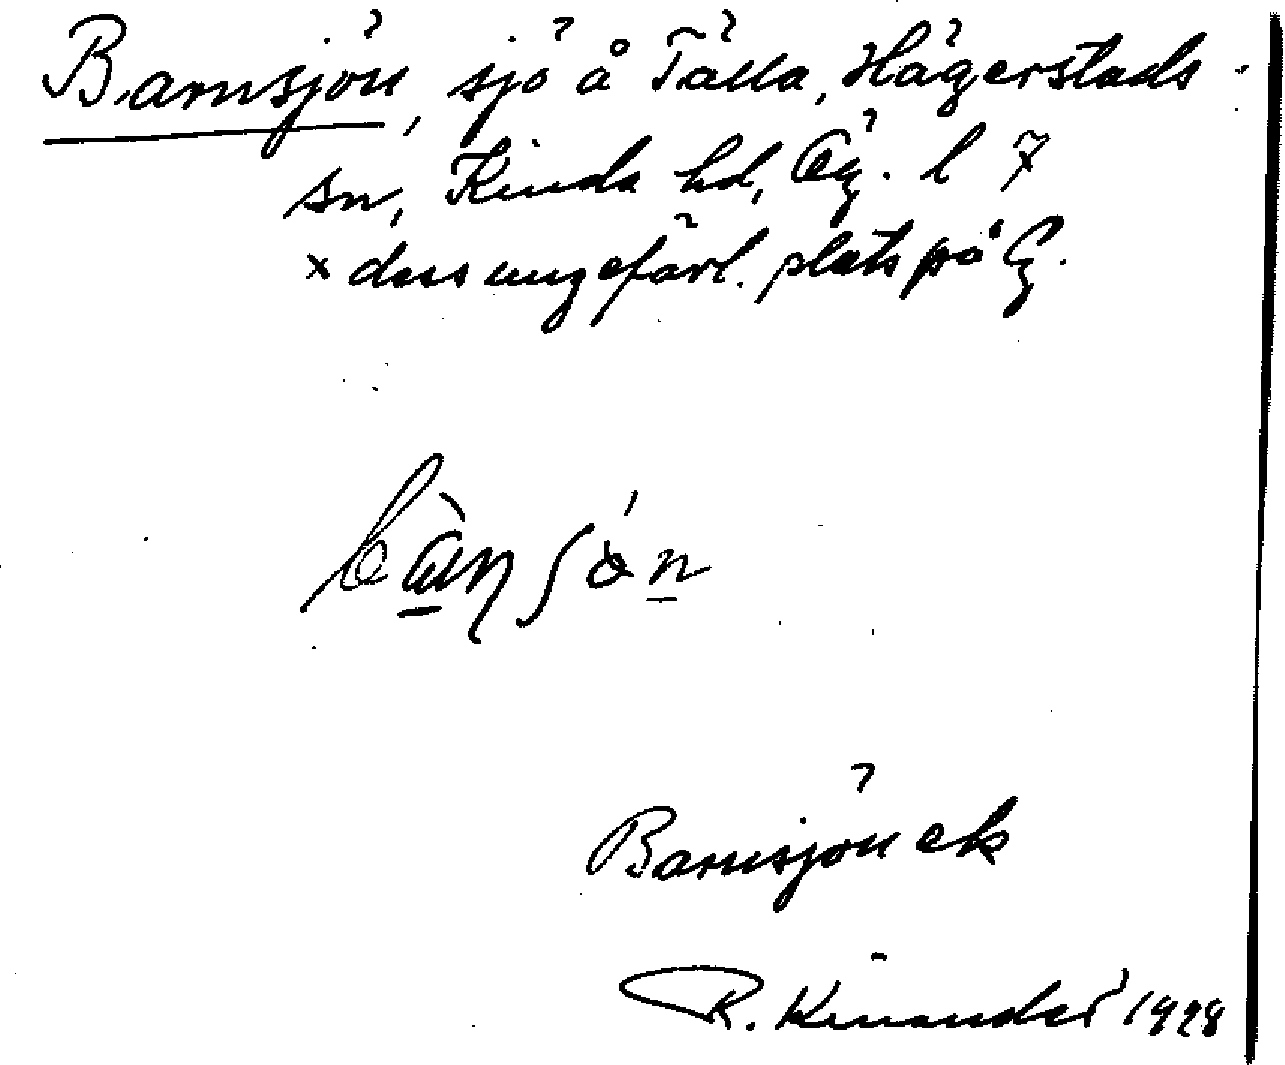 Barnsjön, sjö å Tälla, Hägerstads
sn, Kinda hd, Ög. l 7
x dess ungefärl. plats på Eg.
Barnsjön ek
R. Kinander 1928